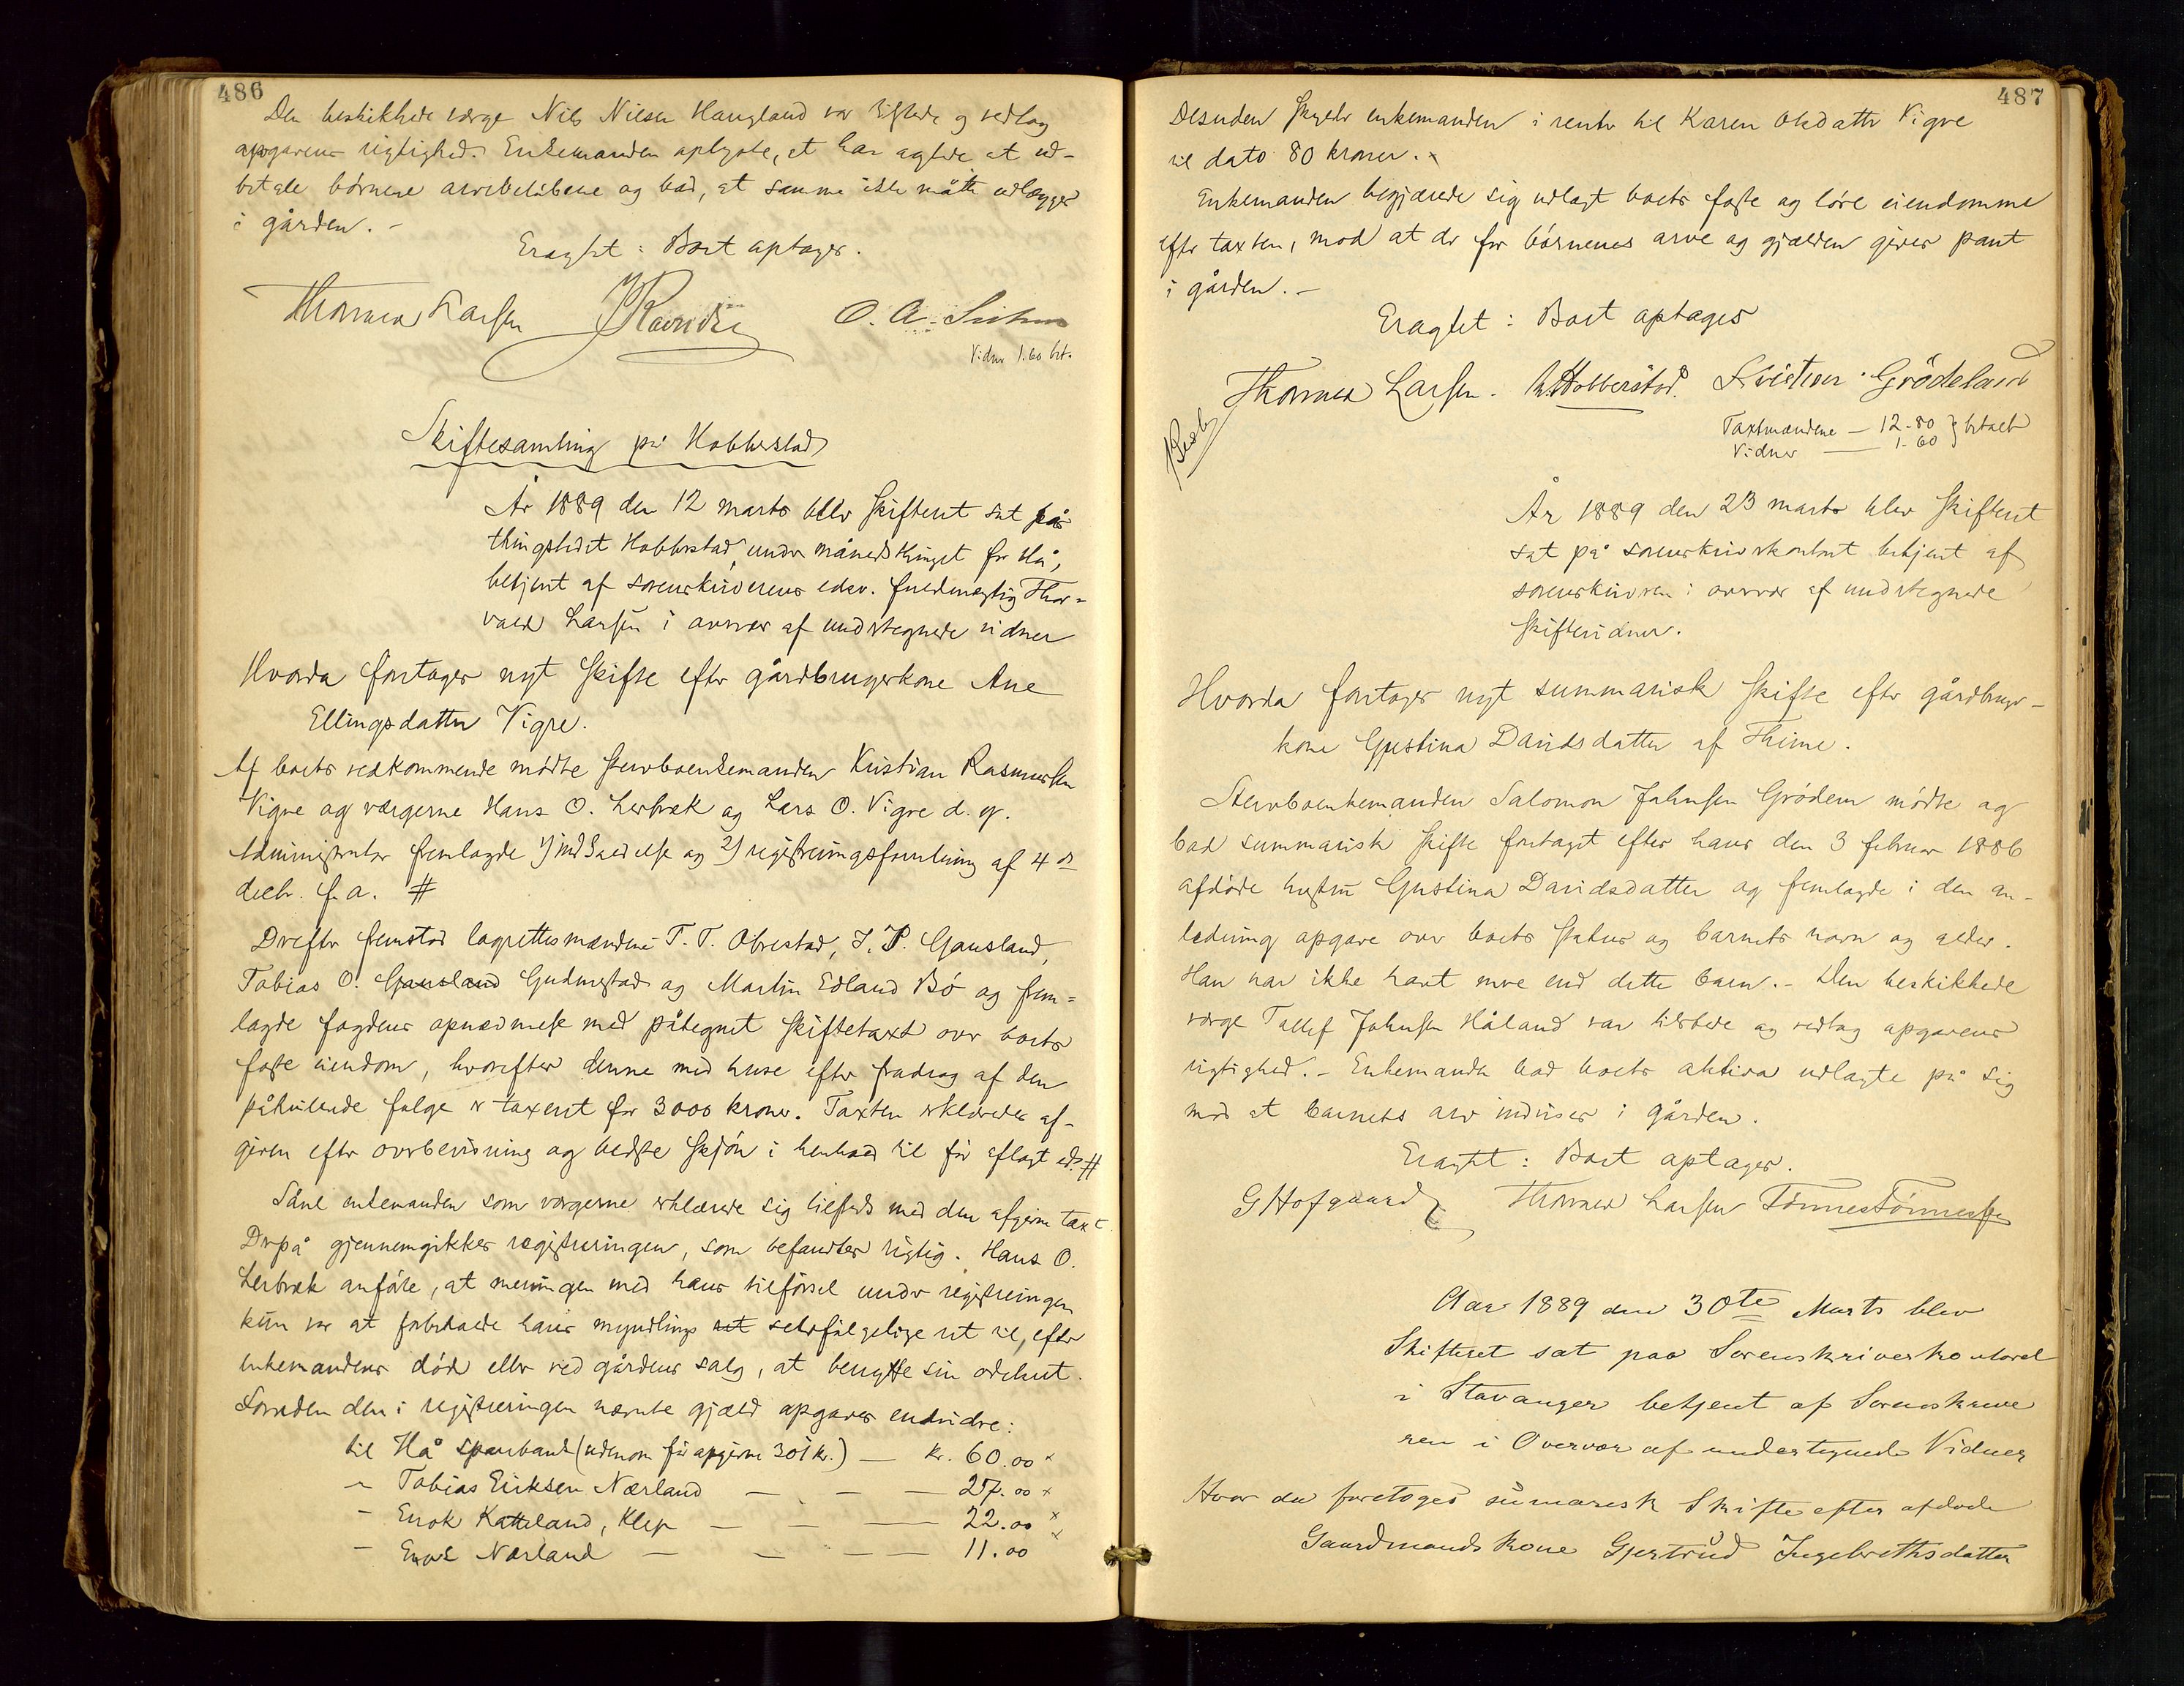 486
Den beskikkede værge Nils Nilsen Haugland var tilstede og vedtog
opgavens rigtighed. Enkemanden oplyste, at han agtede at ud-
betale børnene arvebeløbene og bad, at samme ikke måtte udlægges
i gården. -
Eragtet: Boet optages.
Thorvald Larsen
O. A.
Vidne 1.60 bet.
Skiftesamling på Hobberstad
År 1889 den 12 marts blev skifteret sat på
thingstedet Hobberstad under månedsthinget for Hå,
betjent af sorenskriverens edsv. fuldmægtig Thor=
vald Larsen i overvær af undertegnede vidner
Hvorda foretages nyt skifte efter gårdbrugerkone Ane
Ellingsdatter Vigre.
Af boets vedkommende mødte stervboenkemanden Kristian Rasmussen
Vigre og værgerne Hans O. Lerbræk og Lars O. Vigre d. y.
Administrator fremlagde 1) indkaldelse og 2) registreringsforretning af 4de
decbr. f. a. #
Derefter fremstod lagrettesmændene T. T. Obrestad, J. P. Gausland,
Tobias O. Gausland Gudmestad og Martin Edland Bø og frem=
lagde fogdens opnævnelse med påtegnet skiftetaxt over boets
faste eiendom, hvorefter denne med huse efter fradrag af den
påhvilende følge er taxeret for 3000 kroner. Taxten erklæredes af-
given efter overbevisning og bedste skjøn i henhold til før aflagt ed. #
Såvel enkemanden som værgerne erklærede sig tilfreds med den afgivne taxt.
Derpå gjennemgikkes registreringen, som befandtes rigtig. Hans O.
Lerbræk anførte, at meningen med hans tilførsel under registreringen
kun var at forbeholde hans myndlings ret selvfølgelige ret til, efter
enkemandens død eller ved gårdens salg, at benytte sin odelsret.
Foruden den i registreringen nævnte gjæld opgaves endvidre:
til Hå sparebank (udenom før opgivne 301 kr.) — kr. 60.00 x
" Tobias Eriksen Nærland — — — 27.00 x
- Enok Katteland, Klep — — — 22.00 x
- Nærland — — — 11.00 x
487
Desuden skyldr enkemanden i rente til Karen Olsdatter Vigre
til dato 80 kroner. x
Enkemanden begjærede sig udlagt boets faste og løse eiendomme
efter taxten, mod at der for børnenes arve og gjælden gives pant
i gården. -
Eragtet: Boet optages
Thorvald Larsen. Hobberstad. Kristian Grödeland
Taxtmændene — 12-80 } betalt
Vidner — 1-60
År 1889 den 23 marts blev skifteret
sat på sorenskriverkontoret betjent af
sorenskriveren i overvær af undertegnede
skiftevidner.
Hvorda foretages nyt summarisk skifte efter gårdbruger-
kone Gustina Davidsdatter af Thime.
Stervboenkemanden Salomon Johnsen Grødem mødte og
bad summarisk skifte foretaget efter hans den 3 februar 1886
afdøde hustru Gustina Davidsdatter og fremlagde i den an-
ledning opgave over boets status og barnets navn og alder.
Han har ikke havt mere end dette barn. - Den beskikkede
værge Tollef Johnsen Håland var tilstede og vedtog opgavens
rigtighed. - Enkemanden bad boets aktiva udlagte på sig
mod at barnets arv indvises i gården.
Eragtet: Boet optages.
G Hofgaard Thorvald Larsen Tönnes Tönnessen
Aar 1889 den 30te Marts blev
Skifteret sat paa Sorenskriverkontoret
i Stavanger betjent af Sorenskrive
ren i Overvær af undertegnede Vidner
Hvor da foretoges sumarisk Skifte efter afdøde
Gaardmandskone Gjertrud Ingebrethsdatter